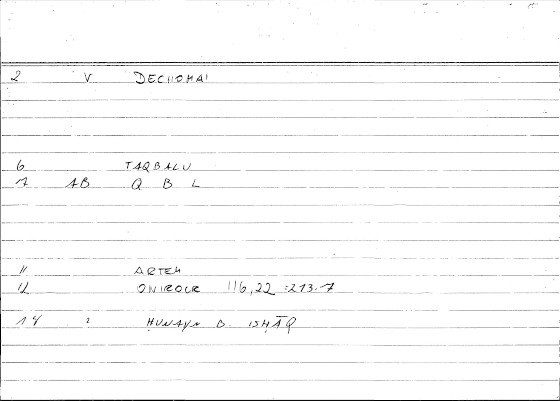 2 V DECHOMAI
6 TAQBALU
7 AB Q B L
11 ARTEM
12 ONIROCR 116,22 = 213.7
14 2 ḤUNAYN B. ISḤĀQ